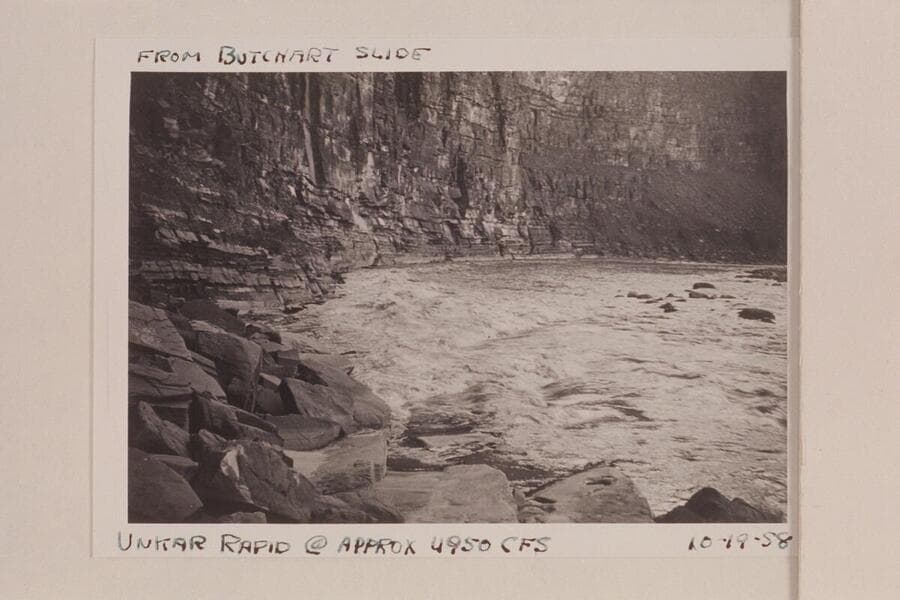 FROM BUTCHART SLIDE
UNKAR RAPID @ APPROX 4950 CFS
10-19-58